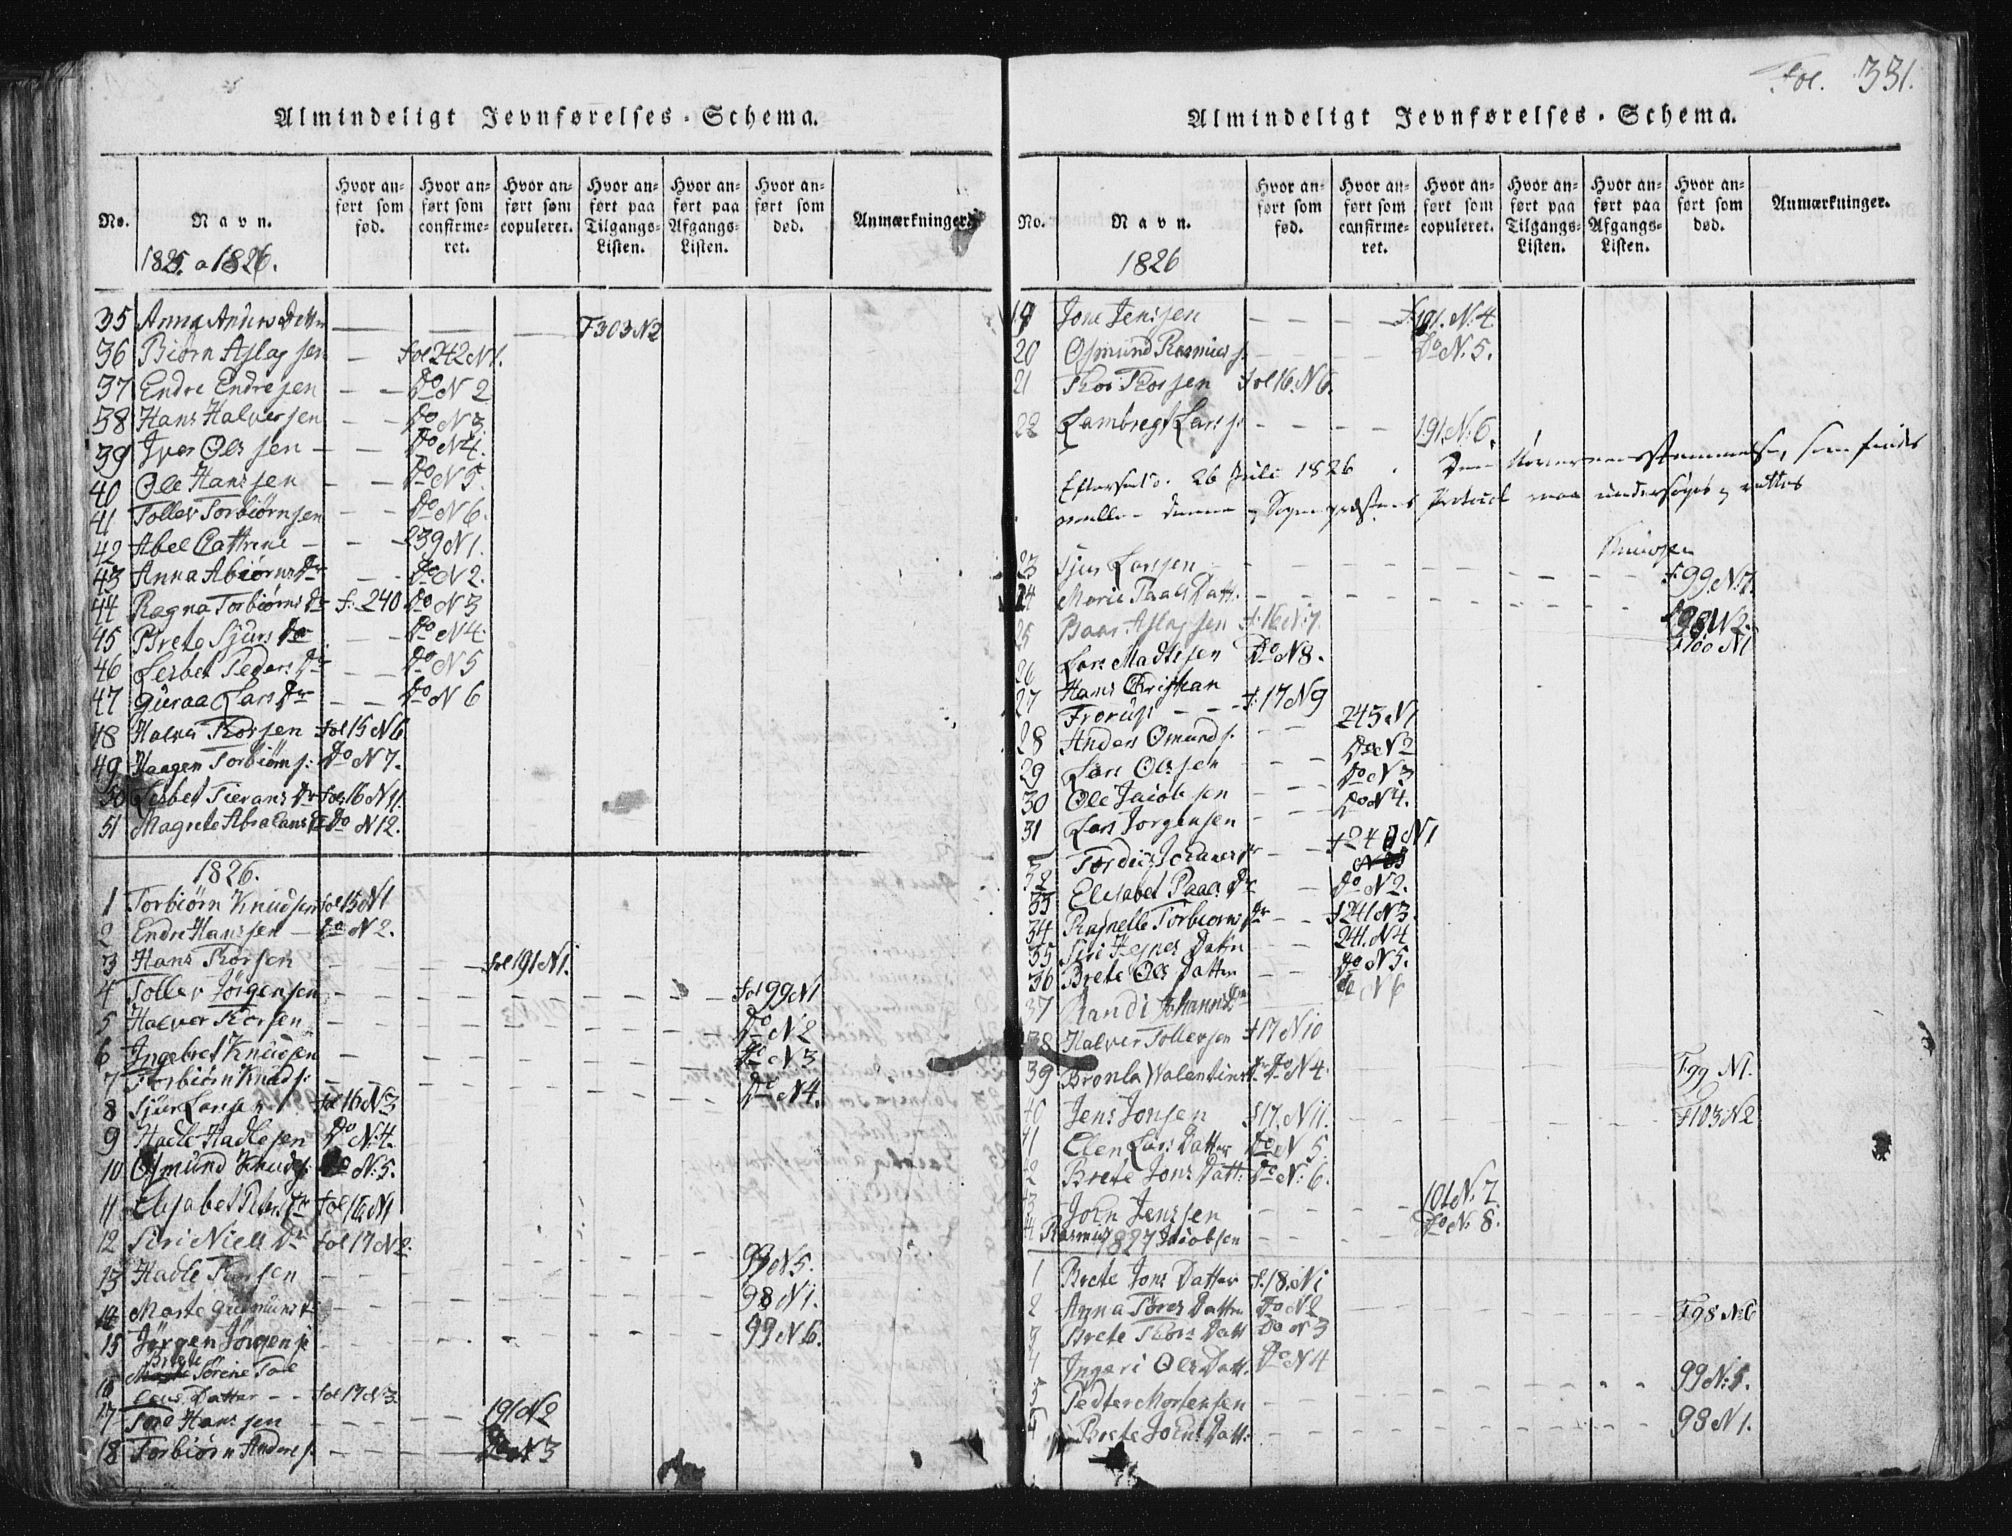 Fol. 331.
Almindeligt Jevnførelses-Schema.
No. Navn. Hvor anført som fød. Hvor anført som confirmeret. Hvor anført som copuleret. Hvor anført paa Tilgangs-Listen. Hvor anført paa Afgangs-Listen. Hvor anført som død. Anmærkninger.
1825 a 1826.
35 Anna Anders Dattr F303N2
36 Biørn Aslagsen fol 242 N1.
37 Endre Endresen Do N 2
38 Hans Halversen Do N 3.
39 Iver Olssen Do N 4.
40 Ole Hanssen Do N 5.
41 Tollev Torbiørnsen Do N 6.
42 Abel Cattrine 239 N1.
43 Anna Abiørns Dr Do N 2.
44 Ragna Torbiørns Dr f. 240 Do N 3
45 Brete Sjurs Dr Do N 4.
46 Lisbet Peders Dr Do N 5
47 Guraa Lars Dr Do N 6
48 Halver Thorsen fol 15 N 6
49 Haagen Torbiørns: Do N 7.
50 Lisbet Tierans Dr fol 16 N 11
51 Magrete Abrahams Dr Do N 12.
1826.
1 Torbiørn Knudsen fol 15 N1
2 Endre Hanssen Do N 2.
3 Hans Thorsen fol 191 N1.
4 Tollev Jörgensen fol 99 N1
5 Halver Thorsen Do N 2
6 Ingebret Knudsen Do N 3
7 Torbiørn Knuds: Do N 4.
8 Sjur Larsen fol 16 N 3
9 Hadle Hadlesen Do N. 4.
10 Osmund Knuds: Do N. 5.
11 Elisabet Peders Dr fol 16 N1
12 Siri Niels Dr fol 17 N 2.
13 Hadle Thorsen 99 N 5.
14 Marte Gudmuns D. 98 N 1.
15 Jörgen Jörgens: 99 N 6.
Brete
16 Sørine Tol
levs Datter fol 17 N 3.
17 Tord Hanssen 191 N 2
18 Torbiørn Anders: Do N 3
Almindeligt Jevnførelses-Schema.
No. Navn. Hvor anført som fød. Hvor anført som confirmeret. Hvor anført som copuleret. Hvor anført paa Tilgangs-Listen. Hvor anført paa Afgangs-Listen. Hvor anført som død. Anmærkninger.
1826
19 Jone Jenssen f. 191. N. 4
20 Osmund Rasmuss: Do N. 5.
21 Thor Thorsen fol 16. N 6.
22 Lambregt Lars s: 191 N. 6.
Efterseet d. 26 Juli 1826. Den Uoverensstemmelse, som findes
mellem denne og Sognepræstens Protocol maa undersøges og rettes
23 Sjur Larssen f. 99. N. 7.
24 Marie Paals Datt. 98 N 2.
25 Baar Aslagsen f. 16 N. 7. f 100 N1
26 Lars Madtssen Do N 8.
27 Hans Christian
Frorup f. 17 N 9
28 Anders Omunds: 245 N 1
29 Lars Olssen Do N 2
30 Ole Jacobsen Do N 3
31 Lars Jorgensen Do N 4.
32 Johanes Dr f 240 N 1
33 Elisabet Paals Dr Do N 2.
34 Ragnelle Torbiorns Dr f 241 N 3.
35 Siri Datter 241. N 4
36 Brete Ols Datter Do N 5.
37 Randi Johanns Dr Do N 6
38 Halver Tollevsen f 17 N 10
39 Bronla Walentins Dr Do N 4. F 99 N1.
40 Jens Jonsen f 17. N 11. f 103 N 2
41 Elen Lars Datter Do N 5.
42 Brete Jons Datt: Do N. 6.
43 John Jenssen 191 N. 7.
44 Rasmus Jacobsen Do N. 8.
1827
1 Brete Jons Datter f. 18. N1
2 Anna Tores Datter Do N 2 F 98 N 6
3 Brete Thors Datt Do N 3
4 Ingeri Ols Datt. Do N 4
5 Pedter Mortensen 99 N. 5.
Brete Johns Datt: 98 N 1.